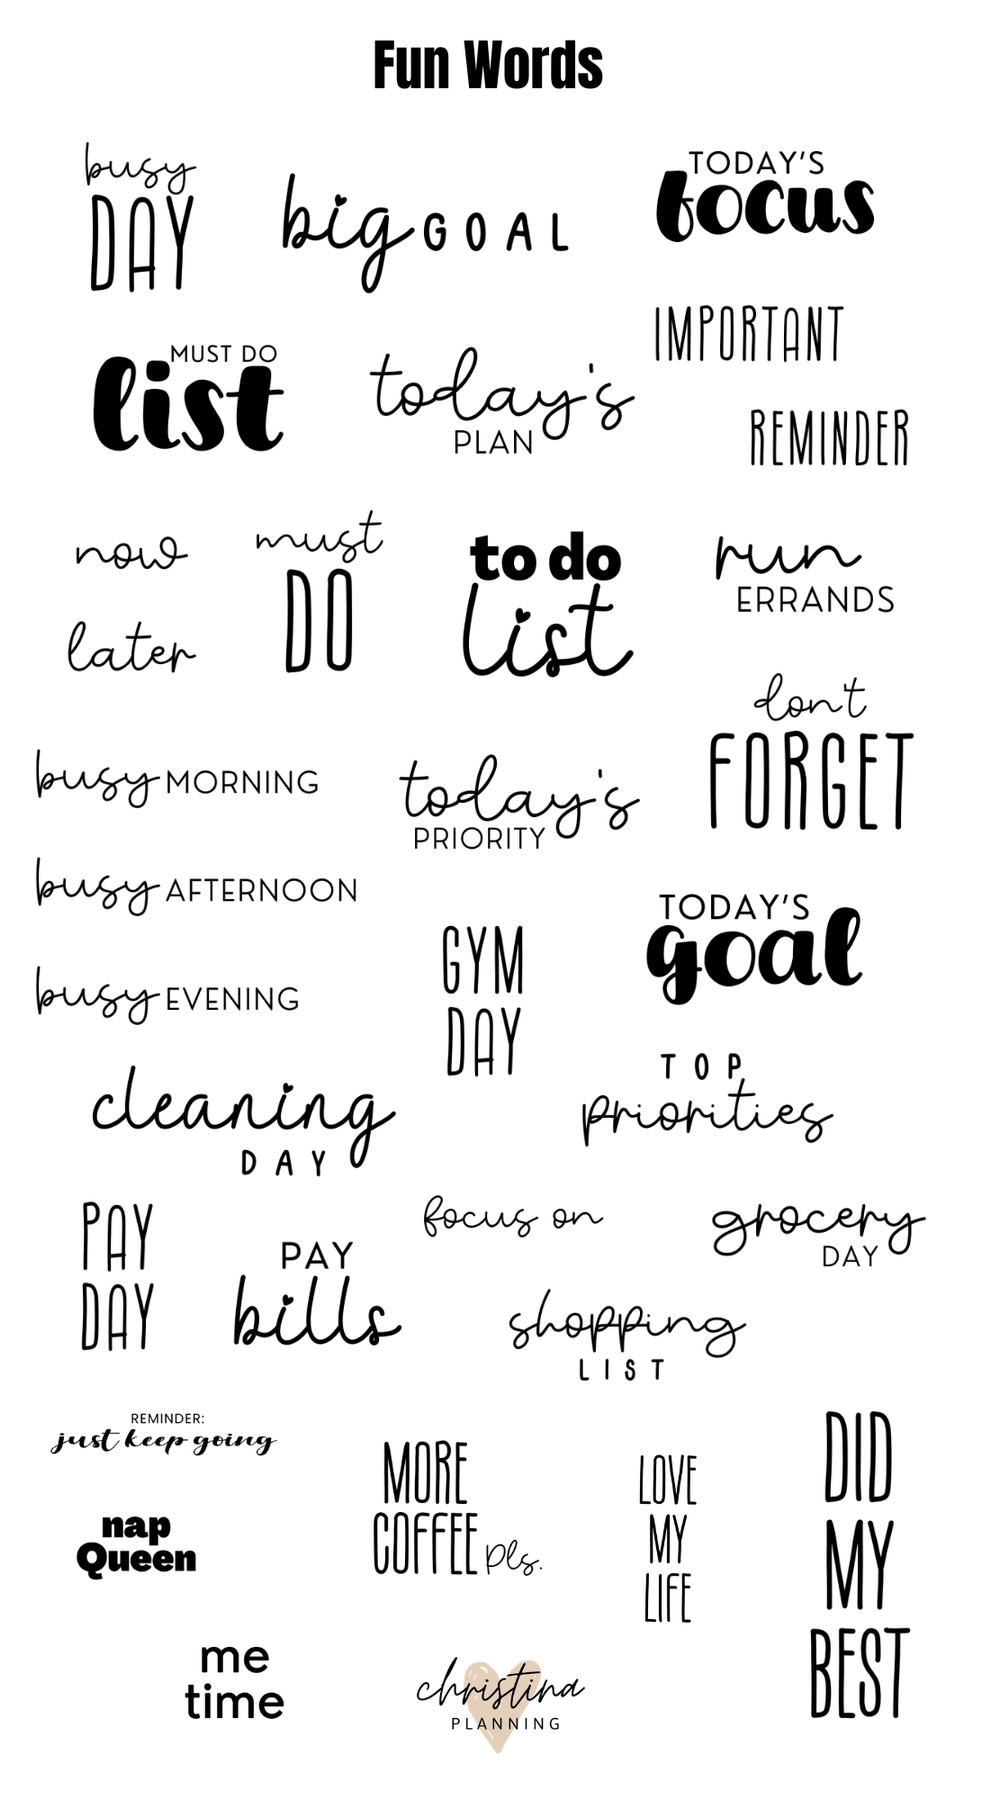 Fun Words
busy
DAY
big GOAL
TODAY'S
focus
IMPORTANT
MUST DO
list
today's
PLAN
REMINDER
now
later
must
DO
to do
list
run
ERRANDS
don't
FORGET
busy MORNING
today's
PRIORITY
busy AFTERNOON
TODAY'S
goal
GYM
DAY
busy EVENING
TOP
priorities
cleaning
DAY
PAY
DAY
PAY
bills
focus on
grocery
DAY
shopping
LIST
REMINDER:
just keep going
MORE
COFFEE pls.
LOVE
MY
LIFE
DID
MY
BEST
nap
Queen
me
time
christina
PLANNING